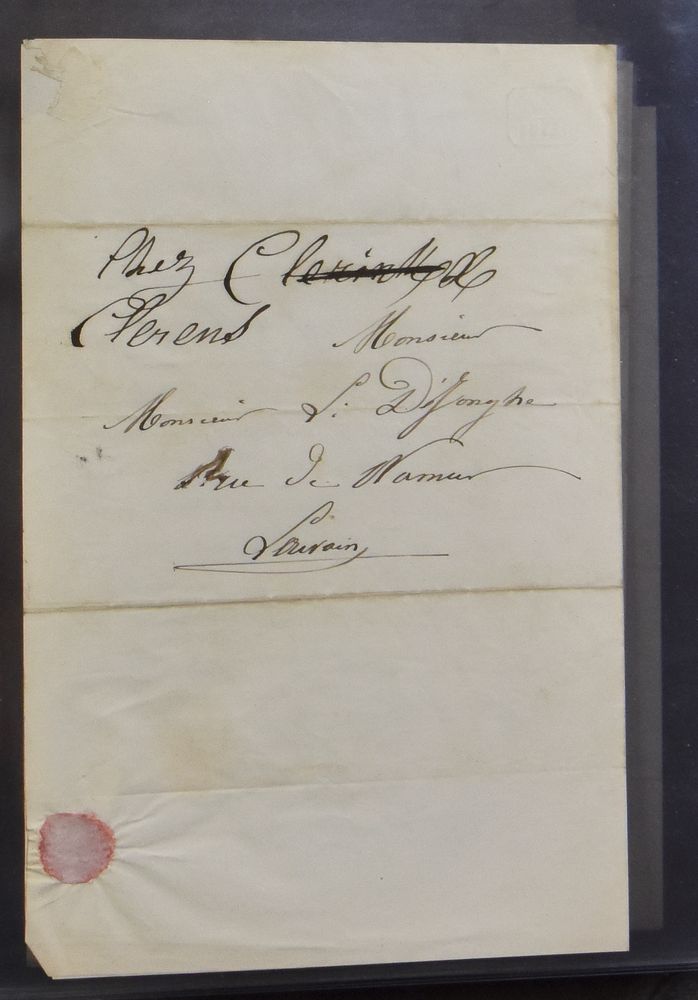 Chez Clerinckx
Clerens
Monsieur
Monsieur L: DeJonghe
Rue de Namur
Louvain